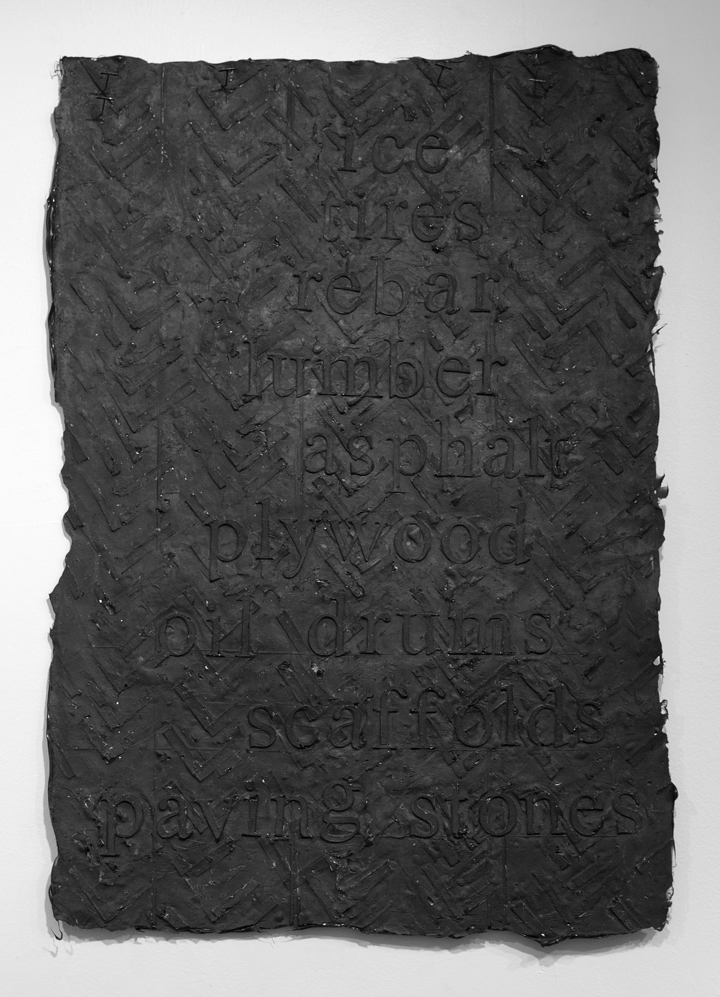 ice
tires
rebar
lumber
asphalt
plywood
oil drums
scaffolds
paving stones